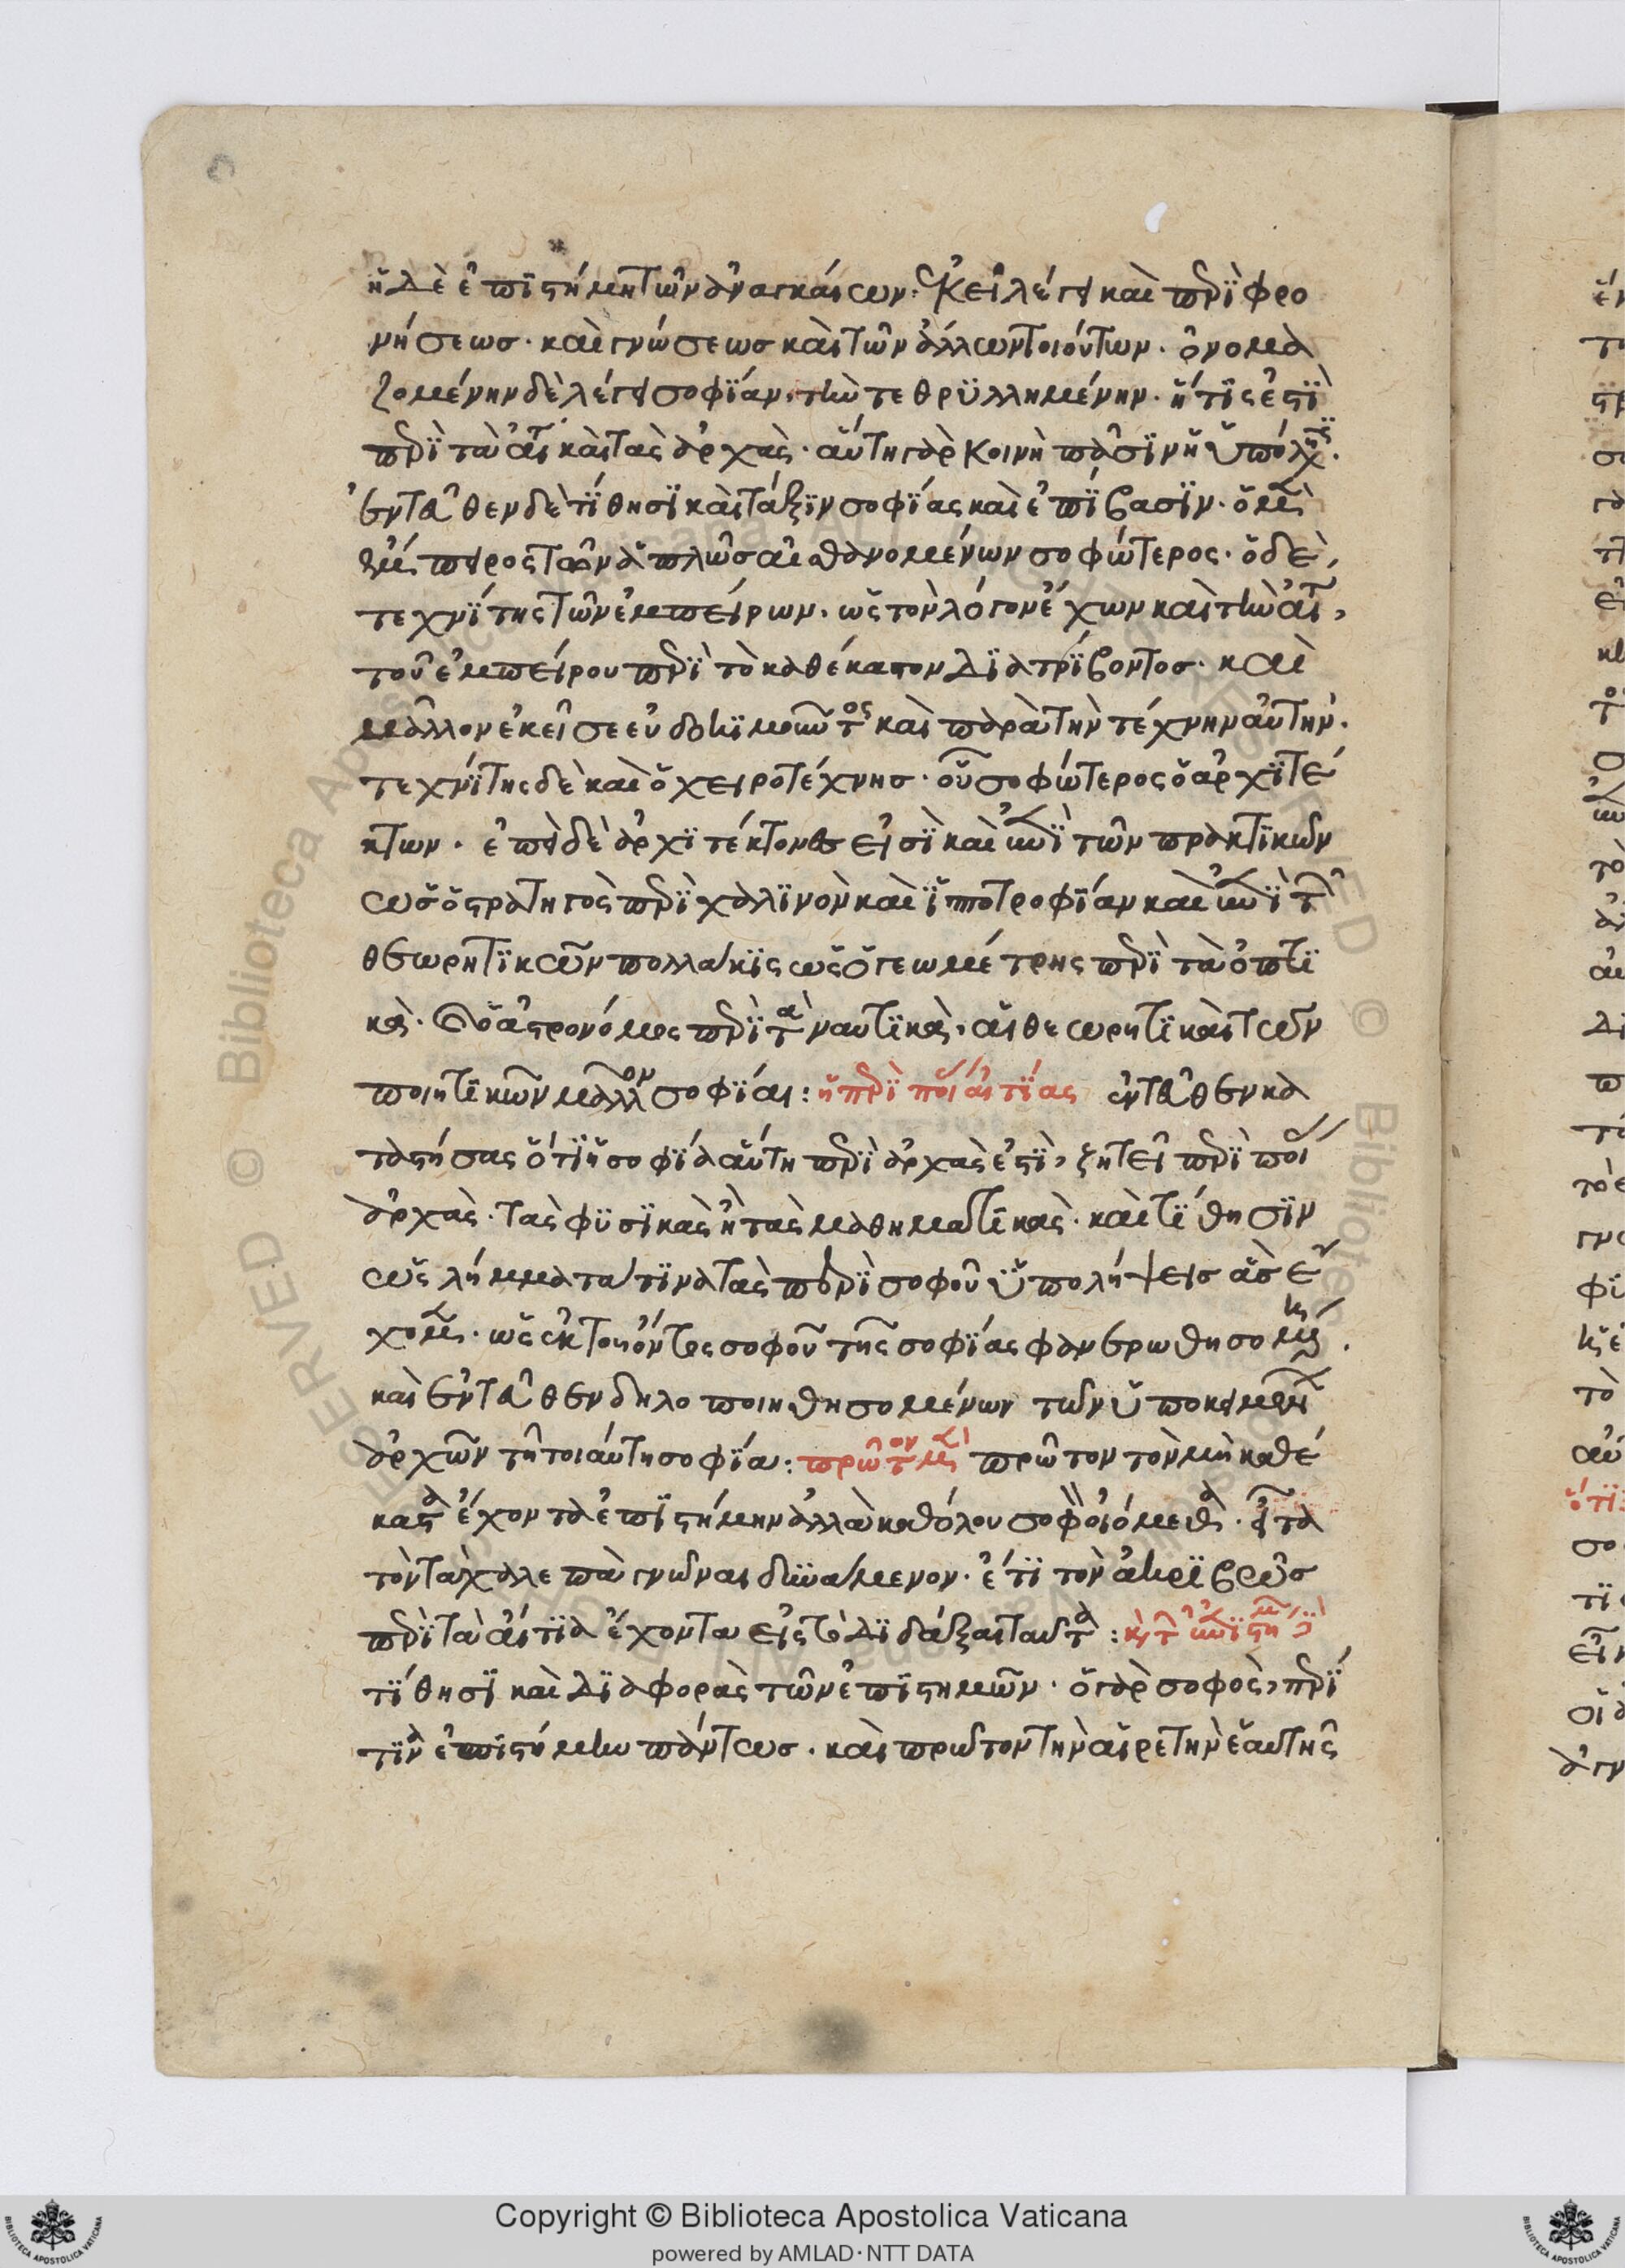 ἡ δὲ ἐπϊστήμη τῶν ἀναγκάιων· ἐκεῖ λέγει καὶ περὶ φρο
νήσεως· καὶ γνώσεως καὶ τῶν ἄλλων τοιούτων· ὀνομα
ζομένην δὲ λέγει σοφΐαν, τὴν τεθρϋλλημένην· ἥτϊς ἐστῒ
περῒ τὰ αἴτ καὶ τὰς ἀρχὰς· αὕτη γὰρ κοινὴ πᾶσϊν ἡ ὑπόληψϊς·
ἐντεῦθεν δὲ τΐθησϊ καὶ τάξϊν σοφΐας καὶ ἐπΐβασϊν· ὁ μὲν
ἔμπειρος τῶν ἁπλῶς αἰσθανομένων σοφώτερος· ὁ δὲ,
τεχνΐτης τῶν ἐμπείρων· ὡς τὸν λόγον ἔχων καὶ τὴν αἰτ,
τοῦ ἐμπείρου περῒ τὸ καθέκαστον δϊατρΐβοντος· καὶ
μᾶλλον ἐκεῖσε εὐδοκϊμοῦντος καὶ παρὰ τὴν τέχνην αὐτὴν·
τεχνΐτης δὲ καὶ ὁ χειροτέχνης· οὗ σοφώτερος ὁ ἀρχϊτέ
κτων· ἐπεὶ δὲ ἀρχϊτέκτονες εἰσῒ καὶ ἐπῒ τῶν πρακτϊκῶν
ὡς ὁ στρατηγὸς περῒ χαλϊνὸν καὶ ἱπποτροφΐαν καὶ ἐπῒ τῶν
θεωρητϊκῶν πολλάκϊς ὡς ὁ γεωμέτρης περῒ τὰ ὀπτϊ
κὰ· ὁ ἀστρονόμος περῒ τὰ ναυτϊκὰ, αἱ θεωρητϊκαὶ τῶν
ποιητϊκῶν μᾶλλον σοφΐαι: ἡ περῒ ποΐας αἰτΐας ἐνταῦθεν κα
ταστήσας ὅτϊ ἡ σοφΐα αὕτη περῒ ἀρχὰς ἐστῒ, ζητεῖ περῒ ποίας
ἀρχὰς· τὰς φϋσϊκὰς ἢ τὰς μαθηματϊκὰς· καὶ τΐθησϊν
ὡς λήμματά τϊνα τὰς περῒ σοφοῦ ὑπολήψεις ἃς ἔ
χομεν· ὡς ἐκ τοῦ ὄντος σοφοῦ τῆς σοφΐας φανερωθησομένης·
καὶ ἐντεῦθεν δηλοποιηθησομένων τῶν ὑποκειμένων
ἀρχῶν τῇ τοιαύτη σοφΐα: πρῶτον μὲν πρῶτον τὸν μὴ καθέ
καστα ἔχοντα ἐπϊστήμην ἀλλὰ καθόλου σοφὸν οἰόμεθα· εἶτα
τὸν τὰ χαλεπὰ γνῶναι δϋνάμενον· ἔτϊ τὸν ἀκρϊβῶς
περῒ τὰ αἴτϊα ἔχοντα εἰς τὸ δϊδάξαι ταῦτα: καὶ τῶν ἐπϊστημῶν
τΐθησϊ καὶ δϊαφορὰς τῶν ἐπϊστημῶν· ὁ γὰρ σοφὸς, περῒ
τϊνὰ ἐπϊστήμην πάντως· καὶ πρῶτον τὴν αἱρετὴν ἑαυτῆς
Copyright © Biblioteca Apostolica Vaticana
powered by AMLAD·NTT DATA